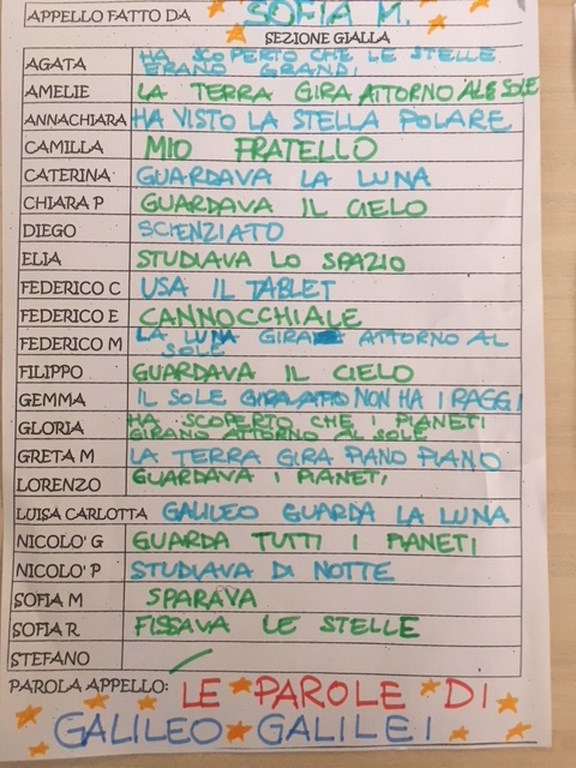 APPELLO FATTO DA SOFIA M.
SEZIONE GIALLA
AGATA HA SCOPERTO CHE LE STELLE
ERANO GRANDI
AMELIE LA TERRA GIRA ATTORNO AL SOLE
ANNACHIARA HA VISTO LA STELLA POLARE
CAMILLA MIO FRATELLO
CATERINA GUARDAVA LA LUNA
CHIARA P GUARDAVA IL CIELO
DIEGO SCIENZIATO
ELIA STUDIAVA LO SPAZIO
FEDERICO C USA IL TABLET
FEDERICO E CANNOCCHIALE
FEDERICO M LA LUNA GIRA ATTORNO AL
SOLE
FILIPPO GUARDAVA IL CIELO
GEMMA IL SOLE NON HA I RAGGI
GLORIA HA SCOPERTO CHE I PIANETI
GIRANO ATTORNO AL SOLE
GRETA M LA TERRA GIRA PIANO PIANO
LORENZO GUARDAVA I PIANETI
LUISA CARLOTTA GALILEO GUARDA LA LUNA
NICOLO' G GUARDA TUTTI I PIANETI
NICOLO' P STUDIAVA DI NOTTE
SOFIA M SPARAVA
SOFIA R FISSAVA LE STELLE
STEFANO
PAROLA APPELLO: LE PAROLE DI
GALILEO GALILEI